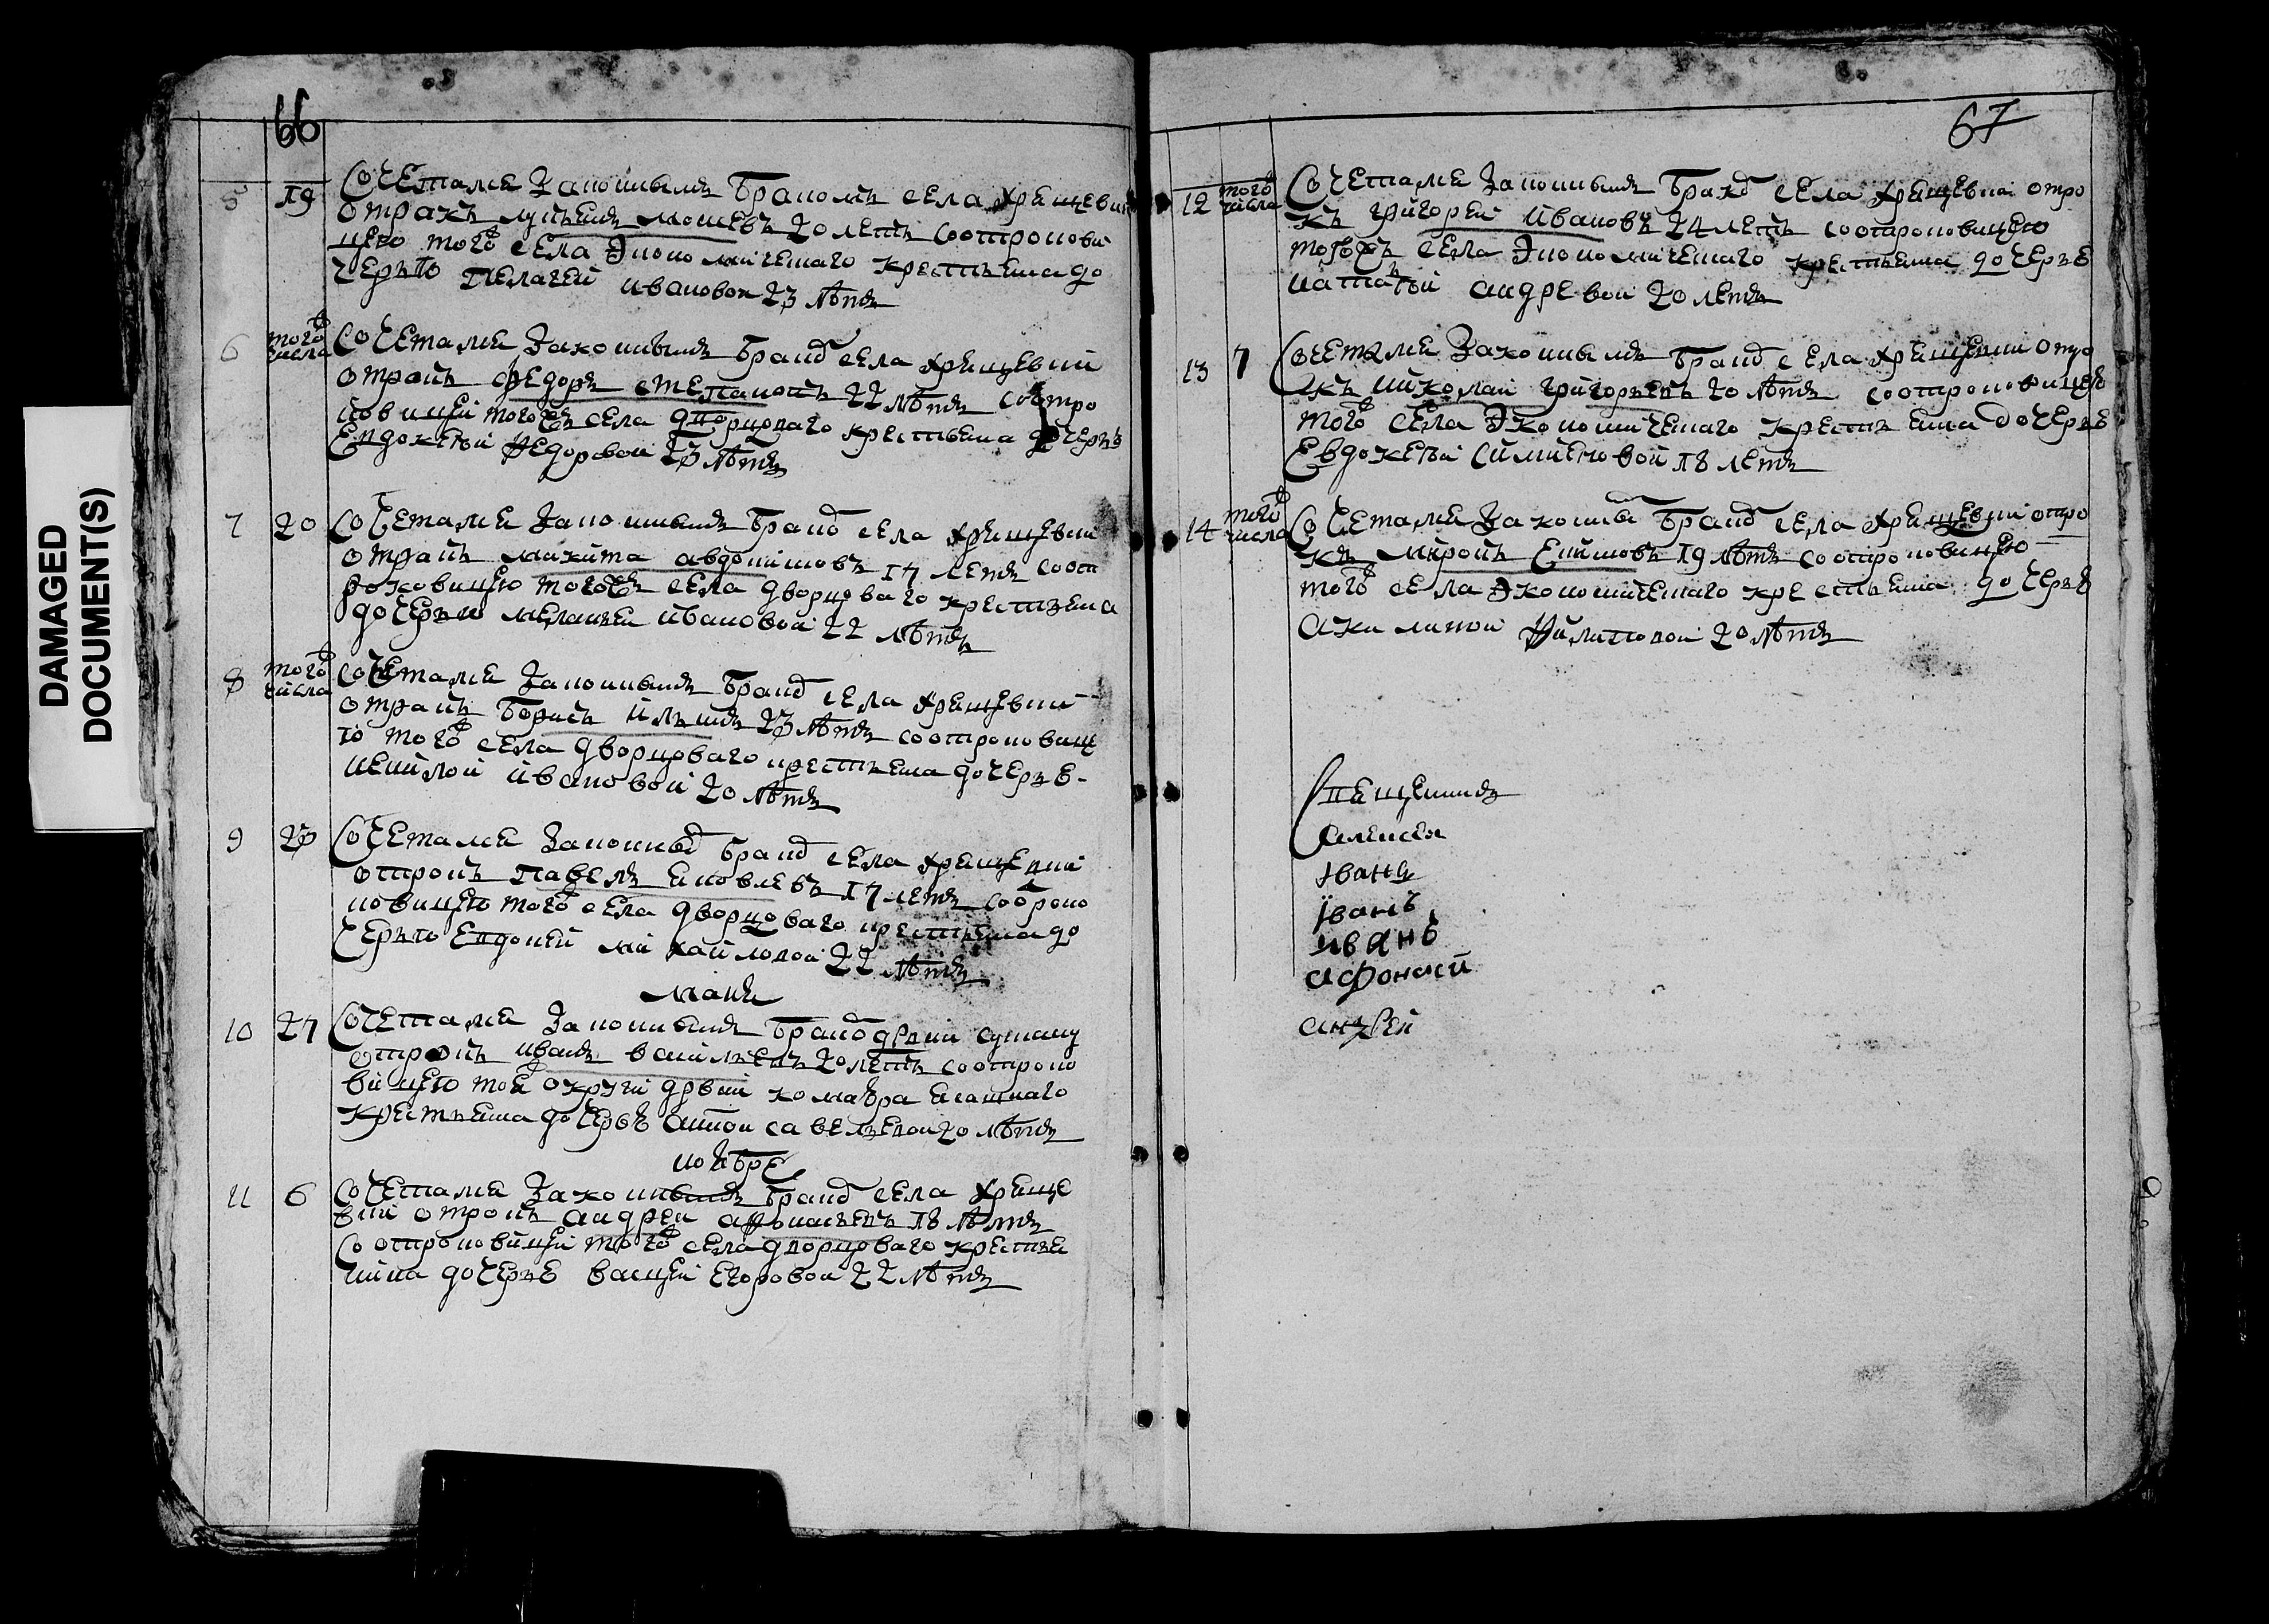 DAMAGED
DOCUMENT(S)
66
5 19 Сочетался законнымъ бракомъ села хрящевки
отракъ лукьянъ мосеевъ 20 летъ соотрокови
цею того села экономическаго крестьенина до
черью Пелагеи ивановои 23 лѣтъ
6 того числа Сочетался законнымъ бракомъ села хрящевки
отракъ федоръ степановъ 22 лѣтъ соотро
ковицеи тогожъ села дворцоваго крестьенина дочерьѣ
Евдокеѣи федоровои 23 лѣтъ
7 20 Сочетался законнымъ бракомъ села хрящевки
отракъ микита авдокимовъ 17 летъ соот
роковицею тогожъ села дворцоваго крестьенина
дочерью меланьеи ивановои 22 лѣтъ
8 того числа Сочетался законнымъ бракомъ села хрящевки
отракъ борисъ ильинъ 23 лѣтъ соотроковице
ю того села дворцоваго крестьенина дочерьѣ
ненилои ивановои 20 лѣтъ
9 23 Сочетался законны бракомъ села хрящевки
отрокъ павелъ яковлевъ 17 летъ соороко
ковицею того села дворцоваго крестьенина до
черью Евдокеи михаиловои 22 лѣтъ
маия
10 27 Сочетался законнымъ бракомъ дрвни сускану
отрокъ иванъ васильевъ 20 летъ соотроко
вицею тои округи дрвни комавра ясашнаго
крестьенина дочерьѣ аннои савельевои 20 лѣтъ
ноября
11 6 Сочетался законнымъ бракомъ села хряще
вки отрокъ андреи афонасьевъ 18 лѣтъ
соотроковицеи того села дворцоваго крестьен
нина дочерьѣ васцеи егоровои 22 лѣтъ
67
12 того числа Сочетался законнымъ бракомъ села хрящевки отро
къ григореи ивановъ 24 летъ соотроковицею
тогожъ села экономическаго крестьенина дочерьѣ
наталѣи андревои 20 летъ
13 7 Сочетался законнымъ бракомъ села хрящевки отро
къ николаи григорьевъ 20 лѣтъ соотроковицею
того села экономическаго крестьенина дочерьѣ
Евдокеѣи симионовои 18 летъ
14 того числа Сочетался законны бракомъ села хрящевки отро
къ миронъ ефимовъ 19 лѣтъ соотроковицею
того села экономическаго крестьенина дочерьѣ
акилинои филиповои 20 лѣтъ
Священникъ
алексеи
Іванъ
Іванъ
иванъ
афонасй
андреи